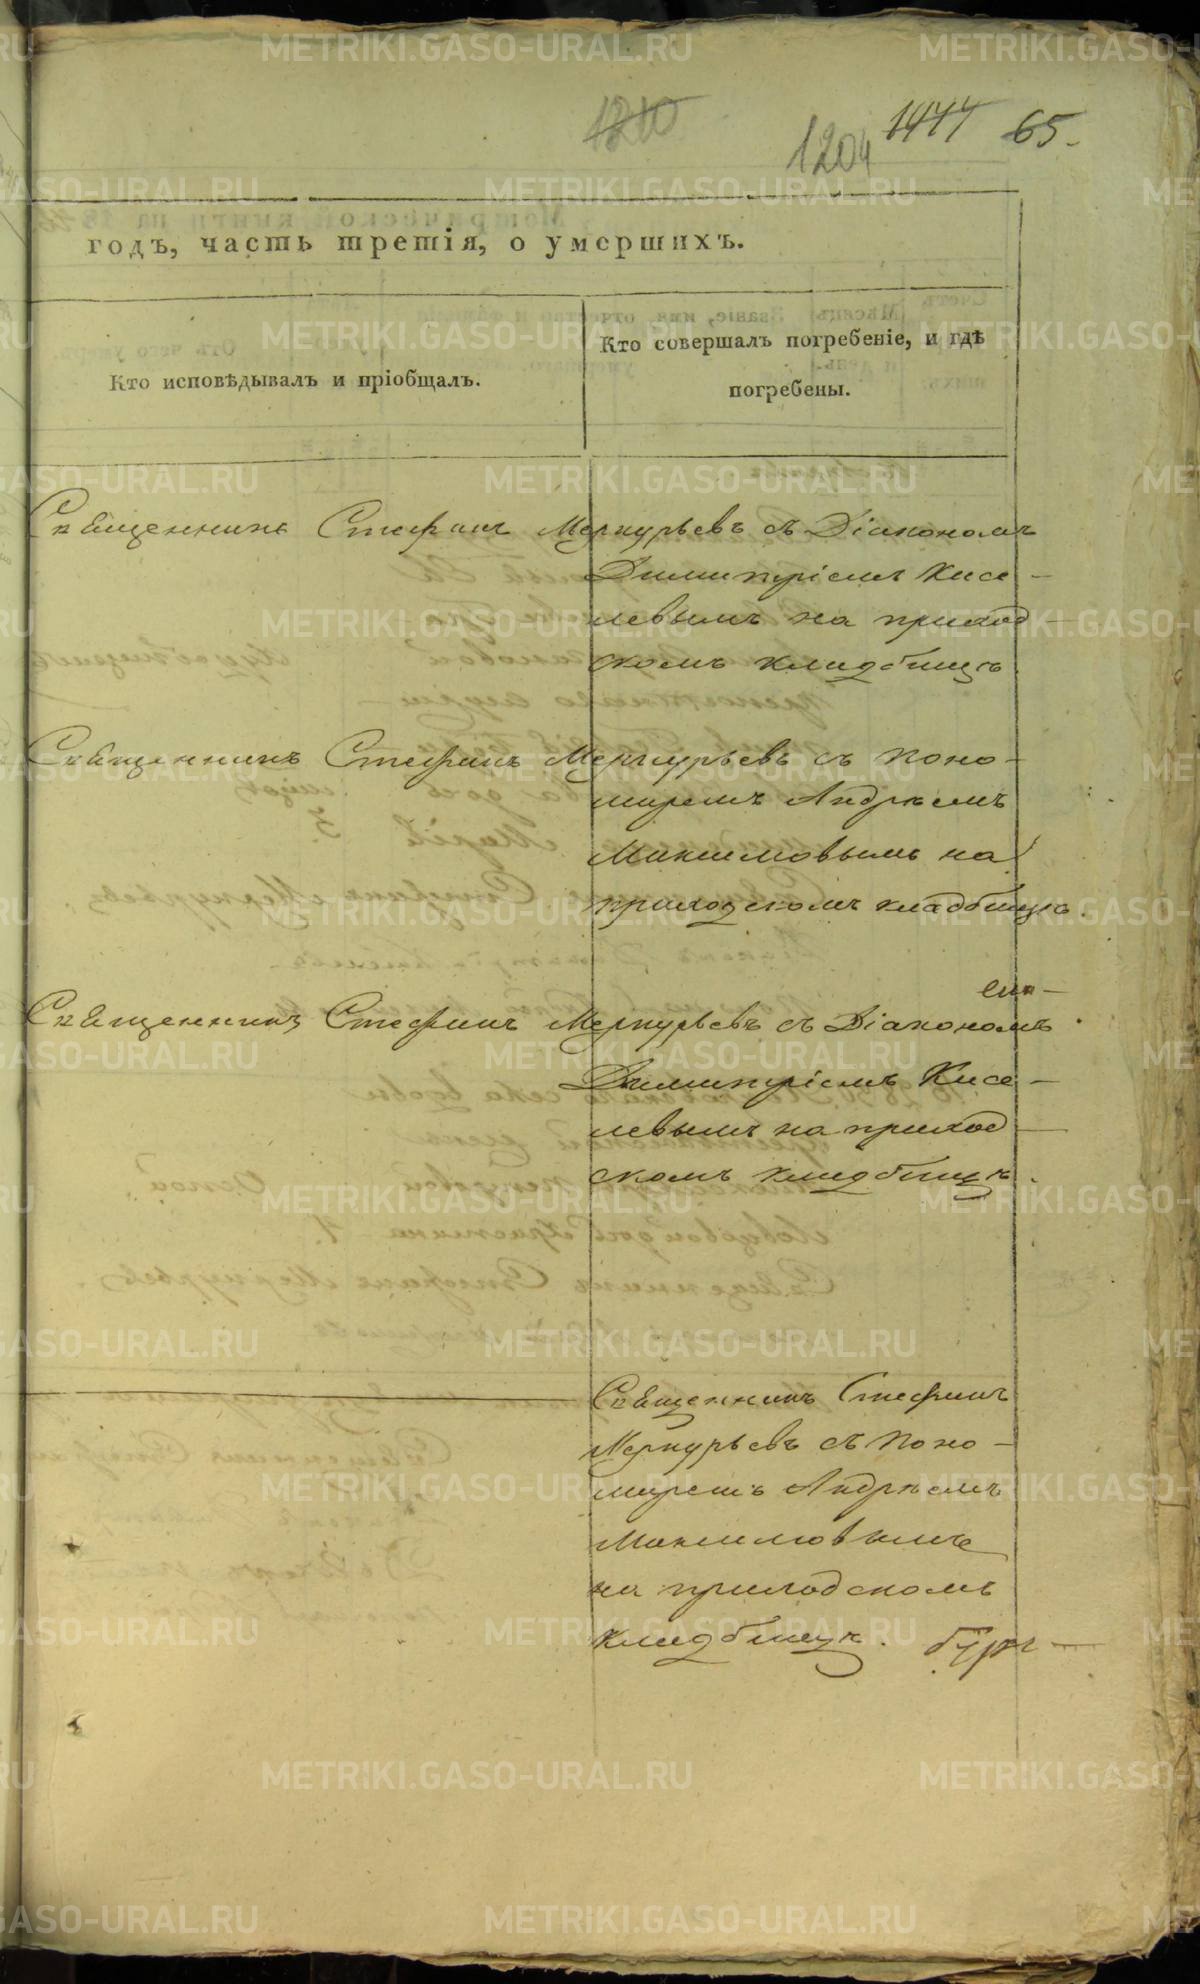 1210
1204 1477 65.
годъ, часть третія, о умершихъ.
Кто исповѣдывалъ и пріобщалъ.
Кто совершалъ погребеніе, и гдѣ
погребены.
Священникъ Стефанъ Меркурьевъ съ Діакономъ
Димитріемъ Кисе-
левымъ на приход-
скомъ кладбищѣ.
Священникъ Стефанъ Меркурьевъ съ Поно-
маремъ Андрѣемъ
Максимовымъ на
приходскомъ кладбищѣ.
Священникъ Стефанъ Меркурьевъ съ Діакономъ
Димитріемъ Кисе-
левымъ на приход-
скомъ кладбищѣ.
Священникъ Стефанъ
Меркурьевъ съ Поно-
маремъ Андрѣемъ
Максимовымъ
на приходскомъ
кладбищѣ.
METRIKI.GASO-URAL.RU